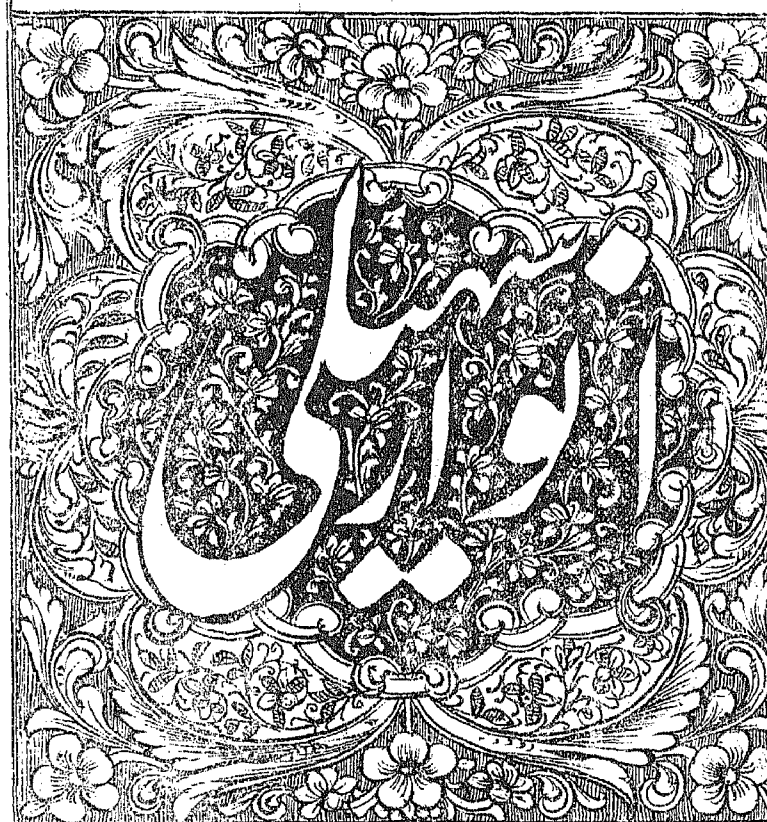 انوار سهیلی